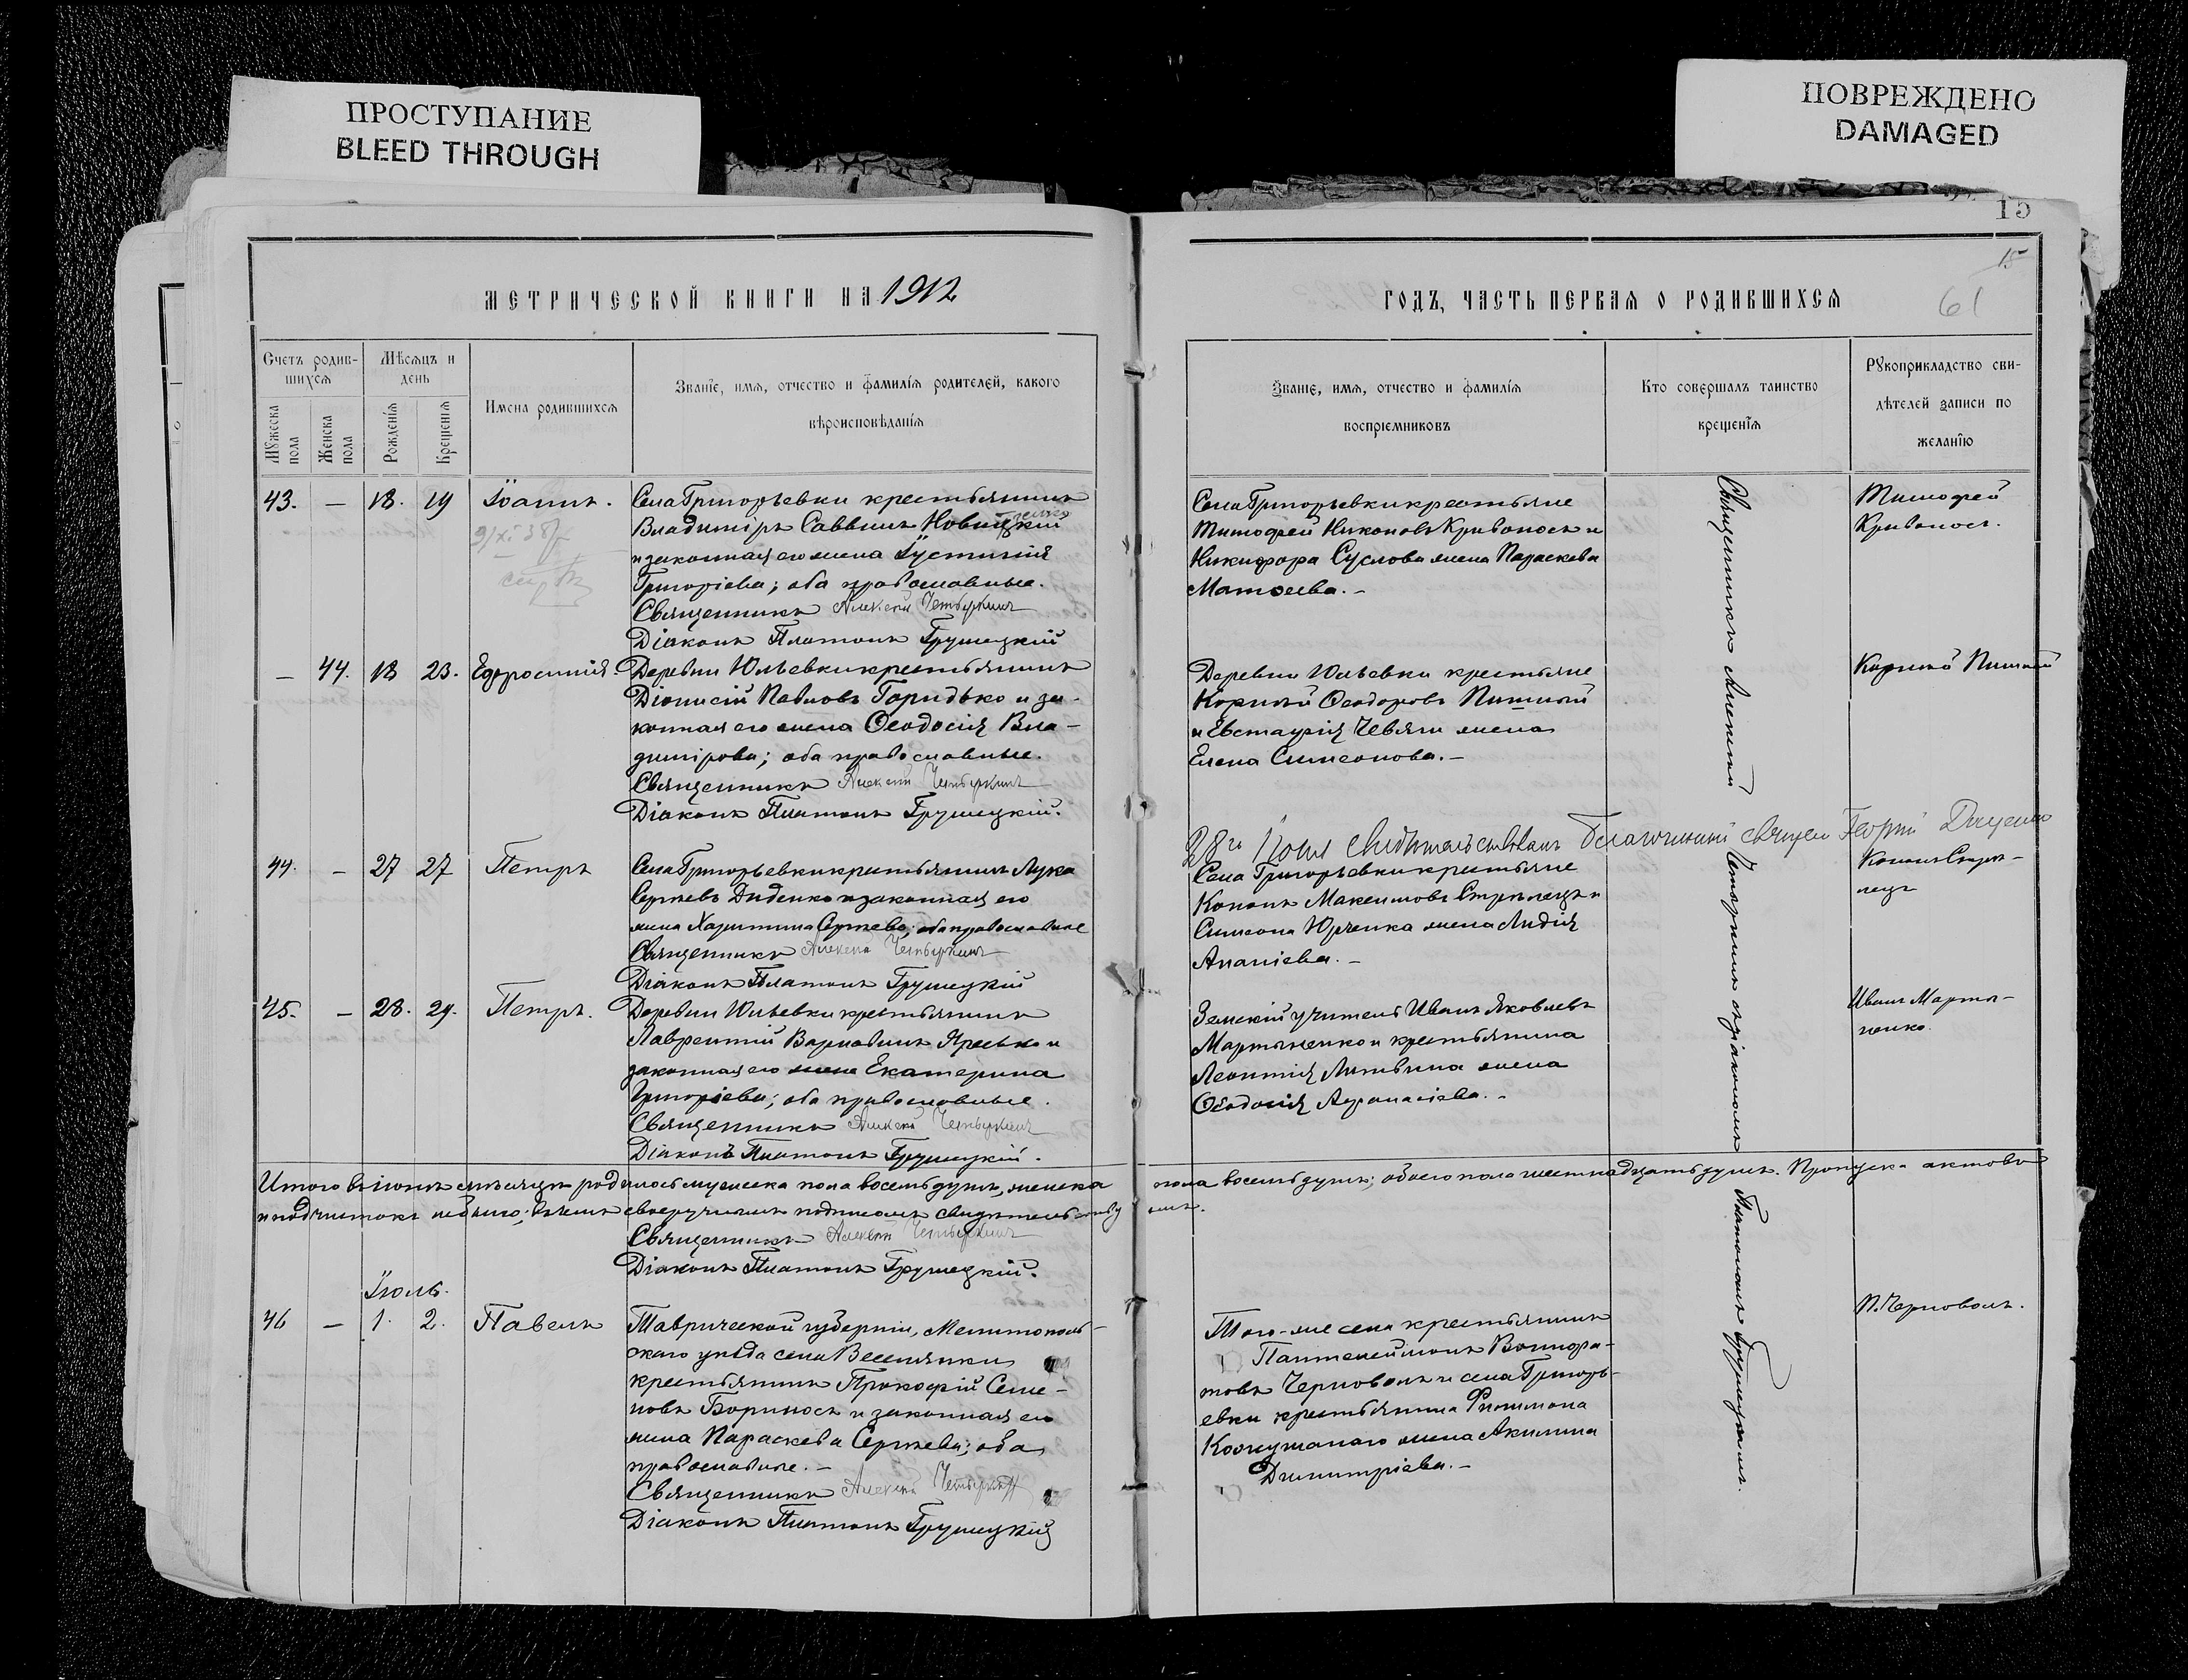 ПРОСТУПАНИЕ
BLEED THROUGH
ПОВРЕЖДЕНО
DAMAGED
15
15
61
МЕТРИЧЕСКОЙ КНИГИ НА 1912
ГОДЪ, ЧАСТЬ ПЕРВАЯ О РОДИВШИХСЯ
Счетъ родив-
шихся
Мужеска пола
Женска пола
Мѣсяцъ и
день
Рожденія
Крещенія
Имена родившихся
Званіе, имя, отчество и фамилія родителей, какого
вѣроисповѣданія
Званіе, имя, отчество и фамилія
воспріемниковъ
Кто совершалъ таинство
крещенія
Рукоприкладство сви-
дѣтелей записи по
желанію
43. — 18. 19 Іоаннъ.
Села Григорьевки крестьянинъ
Владиміръ Саввинъ Новицкій
и законная его жена Іустинія
Григоріева; оба православные.
Священникъ Алексій Четыркинъ
Діаконъ Платонъ Грушецкій
Села Григорьевки крестьяне
Тимофей Никоновъ Кривоносъ и
Никифора Суслова жена Параскева
Матѳеева. –
Тимофей
Кривоносъ.
— 44. 18 23. Ефросинія.
Деревни Юльевки крестьянинъ
Діонисій Павловъ Горидько и за-
конная его жена Ѳеодосія Вла-
димірова; оба православные.
Священникъ Алексій Четыркинъ
Діаконъ Платонъ Грушецкій.
Деревни Юльевки крестьяне
Корнилій Ѳеодоровъ Пишній
и Евстафія Чевяги жена
Елена Симеонова. –
28го Іюня свидѣтельствовалъ благочинный священ Георгій Диценко
44. – 27 27 Петръ
Села Григорьевки крестьянинъ Лука
Сергѣевъ Диденко и законная его
жена Харитина Сергѣева; оба православные
Священникъ Алексій Четыркинъ
Діаконъ Платонъ Грушецкій
Села Григорьевки крестьяне
Кононъ Максимовъ Стрѣлецъ и
Симеона Юрченка жена Лидія
Ананіева. –
Кононъ Стрѣ-
лецъ
45. – 28. 29. Петръ.
Деревни Юльевки крестьянинъ
Лаврентій Варнавинъ Яресько и
законная его жена Екатерина
Григоріева; оба православные.
Священникъ Алексій Четыркинъ
Діаконъ Платонъ Грушецкій.
Земскій учитель Иванъ Яковлевъ
Мартыненко и крестьянина
Леонтія Литвина жена
Ѳеодосія Аѳанасіева. –
Иванъ Марты-
ненко.
Итого въ іюнѣ мѣсяцѣ родилось мужеска пола восемь душъ, женска пола восемь душъ; обоего пола шестнадцать душъ. Пропуска актовъ
и подчистокъ не было; въ чемъ своеручнымъ подписомъ свидѣтельствуемъ.
Священникъ Алексій Четыркинъ
Діаконъ Платонъ Грушецкій.
Іюль.
46 – 1. 2. Павелъ
Таврической губерніи, Мелитополь-
скаго уѣзда села Веселянки
крестьянинъ Прокофій Семе-
новъ Бориносъ и законная его
жена Параскева Сергѣева; оба
православные. –
Священникъ Алексій Четыркинъ
Діаконъ Платонъ Грушецкій
Того-же села крестьянинъ
Пантелеймонъ Вонифа-
товъ Черноволъ и села Григорь-
евки крестьянина Филимона
Кожушанаго жена Акилина
Димитріева. –
П. Черноволъ.
Священникъ Алексій Четыркинъ съ діакономъ Платономъ Грушецкимъ.